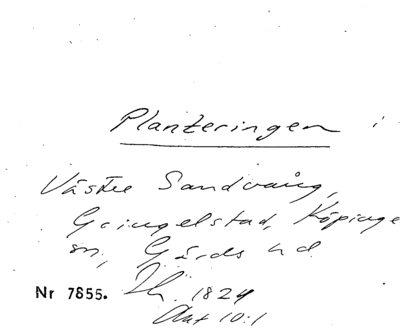 Planteringen i
Västra Sandvång,
Gringelstad, Köpinge
sn, Gärds hd
Nr 7855. 1824
Akt 10:1